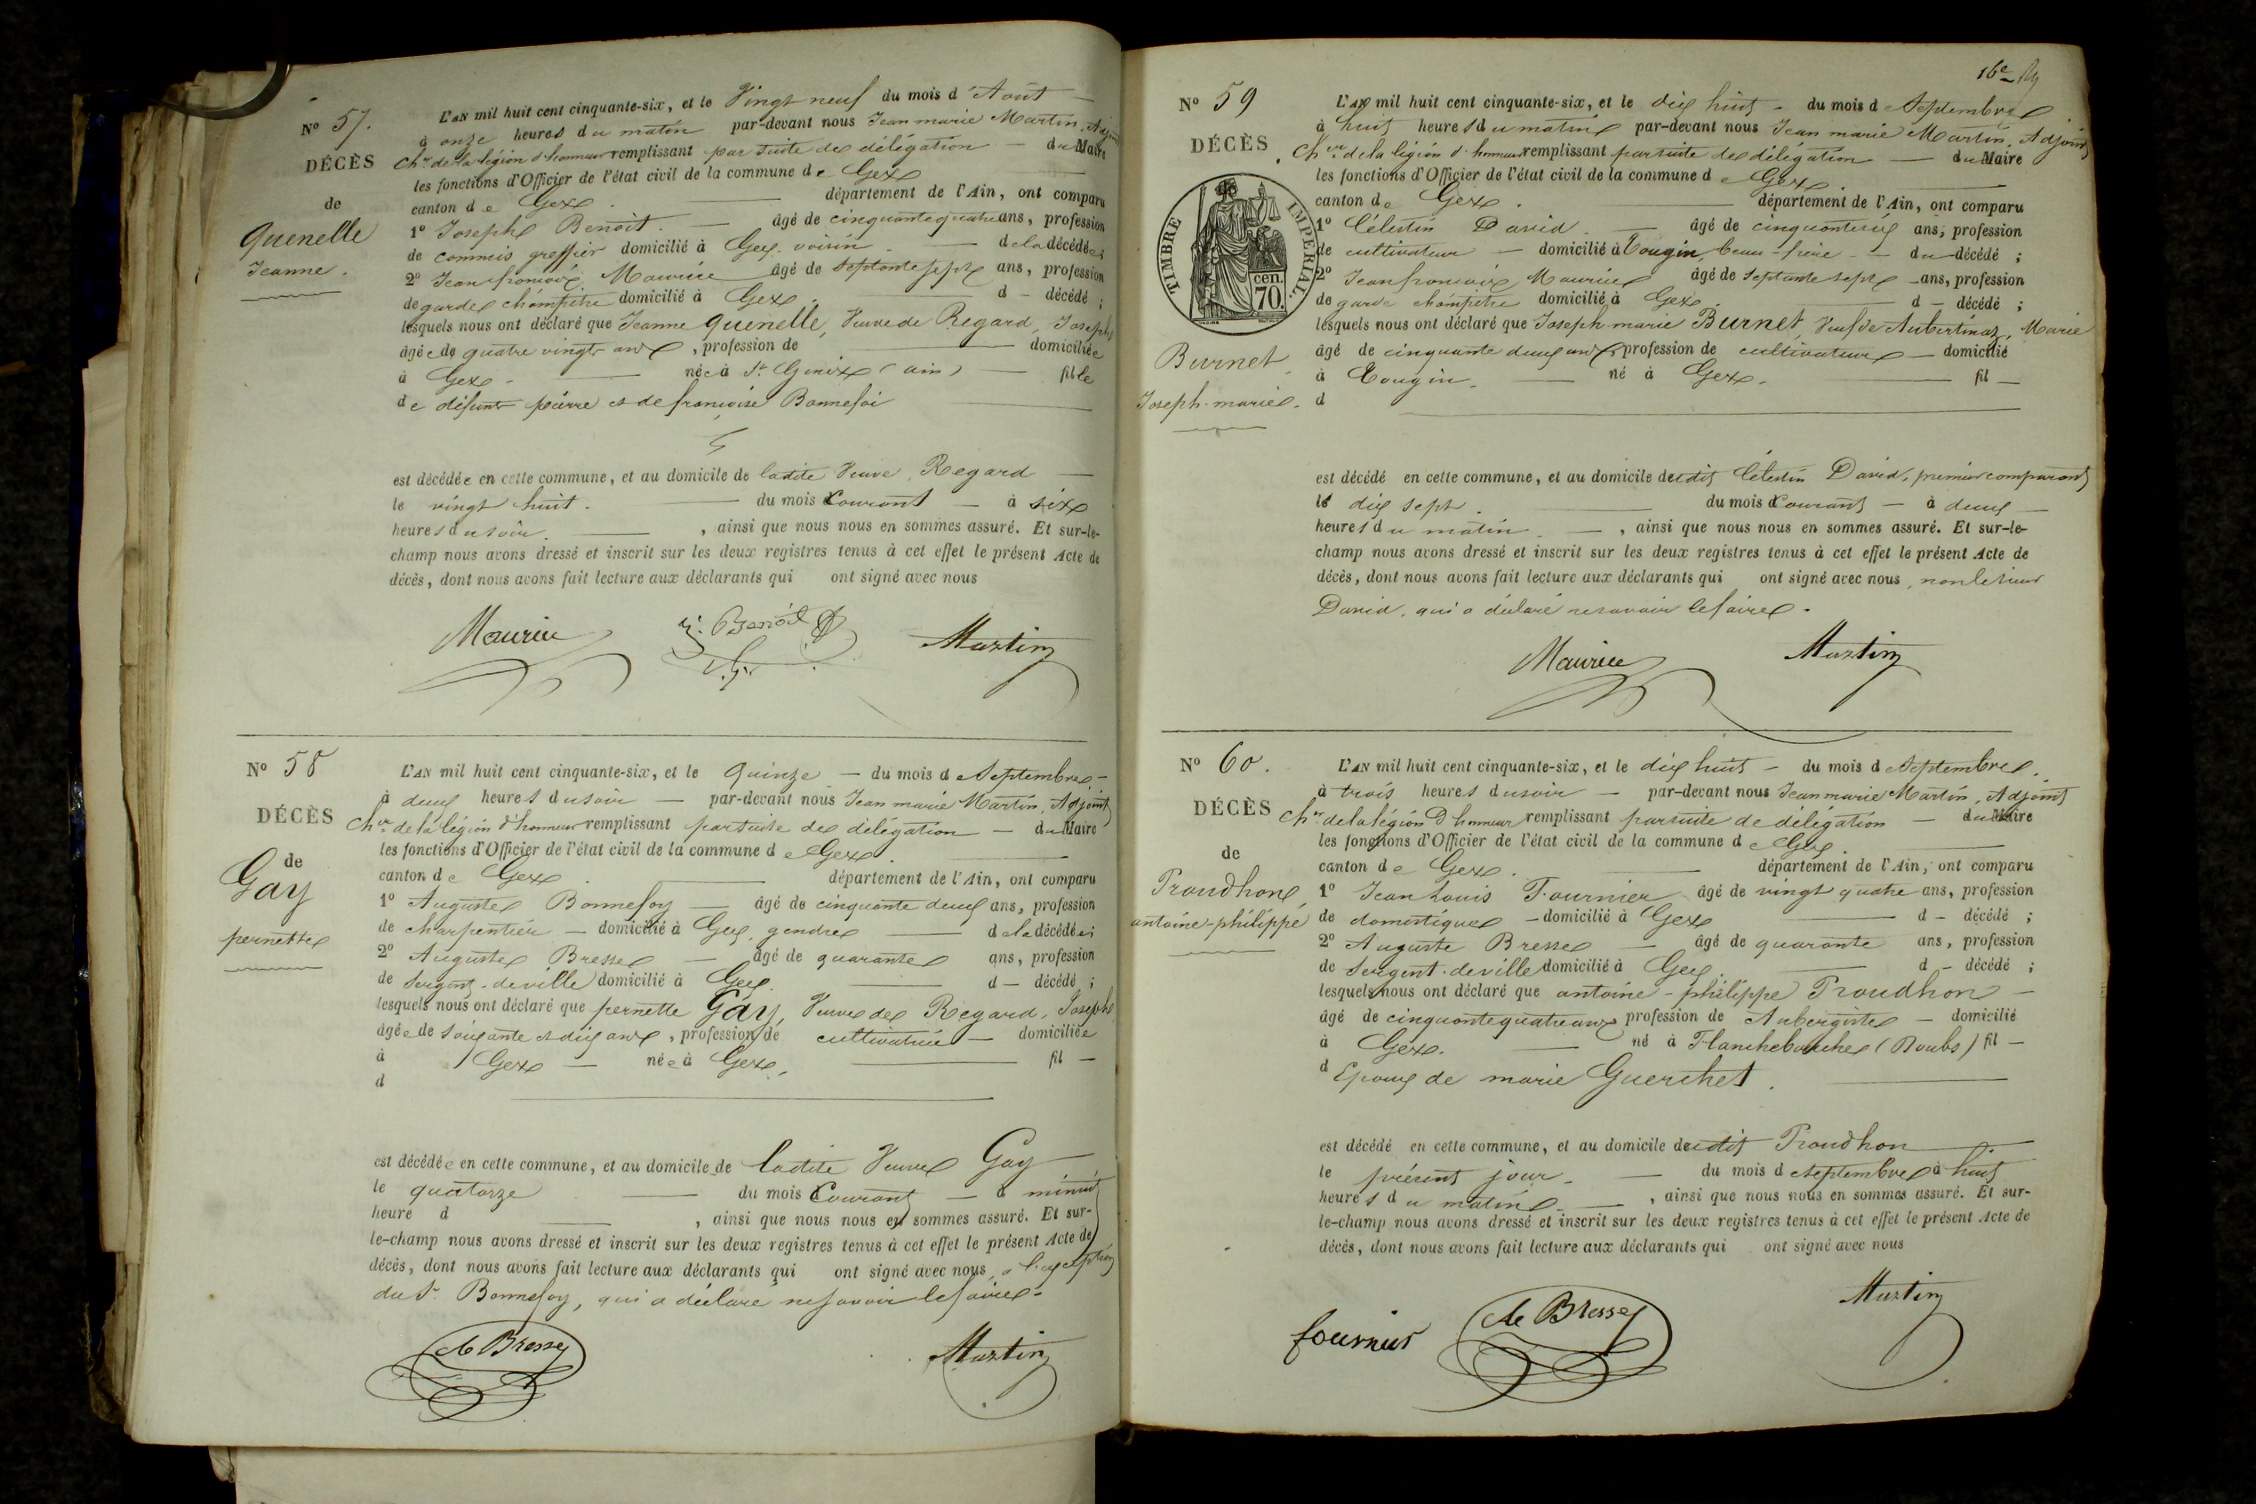 N° 57.
DÉCÈS
de
Quenelle
Jeanne.
L'AN mil huit cent cinquante-six, et le Vingt neuf du mois d'Août
à onze heures du matin par-devant nous Jean marie Martin, Adjoint
Chr de la légion d'honneur remplissant par suite de délégation du Maire
les fonctions d'Officier de l'état civil de la commune de Gex
canton de Gex. département de l'Ain, ont comparu
1° Joseph Benoit. âgé de cinquante quatre ans, profession
de commis greffier domicilié à Gex. voisin de la décédée;
2° Jean françois Maurice âgé de septante sept ans, profession
de garde champêtre domicilié à Gex. d décédé;
lesquels nous ont déclaré que Jeanne Quenelle, Veuve de Regard, Joseph
âgée de quatre vingts ans, profession de domiciliée
à Gex. née à St. Genix (ain) fille
de défunt pierre et de françoise Bonnefoi
est décédée en cette commune, et au domicile de ladite Veuve Regard
le vingt huit. du mois Courant à six
heures du soir. , ainsi que nous nous en sommes assuré. Et sur-le-
champ nous avons dressé et inscrit sur les deux registres tenus à cet effet le présent Acte de
décès, dont nous avons fait lecture aux déclarants qui ont signé avec nous
Maurice J. Benoit Martin
N° 58
DÉCÈS
de
Gay
pernette
L'AN mil huit cent cinquante-six, et le quinze du mois de Septembre
à deux heures du soir par-devant nous Jean marie Martin, Adjoint
Chr de la légion d'honneur remplissant par suite de délégation du Maire
les fonctions d'Officier de l'état civil de la commune de Gex.
canton de Gex département de l'Ain, ont comparu
1° Auguste Bonnefoy âgé de cinquante deux ans, profession
de charpentier domicilié à Gex, gendre de la décédée;
2° Auguste Bresse âgé de quarante ans, profession
de sergent de ville domicilié à Gex. d décédé;
lesquels nous ont déclaré que pernette Gay, Veuve de Regard, Joseph
âgée de soixante et dix ans, profession de cultivatrice domiciliée
à Gex née à Gex, fil
d
est décédée en cette commune, et au domicile de ladite Veuve Gay
le quatorze du mois Courant à minuit
heure d , ainsi que nous nous en sommes assuré. Et sur-
le-champ nous avons dressé et inscrit sur les deux registres tenus à cet effet le présent Acte de
décès, dont nous avons fait lecture aux déclarants qui ont signé avec nous, à l'exception
du Sr Bonnefoy, qui a déclaré ne savoir le faire.
de Bresse Martin
16e
N° 59
DÉCÈS
TIMBRE IMPERIAL.
70 cen.
Burnet
Joseph-marie.
L'AN mil huit cent cinquante-six, et le dix huit du mois de Septembre
à huit heures du matin par-devant nous Jean marie Martin, Adjoint
Chr de la légion d'honneur remplissant par suite de délégation du Maire
les fonctions d'Officier de l'état civil de la commune de Gex.
canton de Gex. département de l'Ain, ont comparu
1° Célestin David. âgé de cinquante six ans, profession
de cultivateur domicilié à Tougin, beau-frère du décédé;
2° Jean françois Maurice âgé de septante sept ans, profession
de garde champêtre domicilié à Gex. d décédé;
lesquels nous ont déclaré que Joseph marie Burnet, Veuf de Aubertinaz, Marie
âgé de cinquante deux ans, profession de cultivateur domicilié
à Tougin. né à Gex. fil
d
est décédé en cette commune, et au domicile dudit Célestin David, premier comparant
le dix sept. du mois Courant à deux
heures du matin , ainsi que nous nous en sommes assuré. Et sur-le-
champ nous avons dressé et inscrit sur les deux registres tenus à cet effet le présent Acte de
décès, dont nous avons fait lecture aux déclarants qui ont signé avec nous, non le sieur
David, qui a déclaré ne savoir le faire.
Maurice Martin
N° 60.
DÉCÈS
de
Proudhon,
antoine-philippe
L'AN mil huit cent cinquante-six, et le dix huit du mois de Septembre.
à trois heures du soir par-devant nous Jean marie Martin, Adjoint
Chr de la légion D'honneur remplissant par suite de délégation du Maire
les fonctions d'Officier de l'état civil de la commune de Gex.
canton de Gex. département de l'Ain, ont comparu
1° Jean Louis Fournier âgé de vingt quatre ans, profession
de domestique domicilié à Gex d décédé;
2° Auguste Bresse âgé de quarante ans, profession
de sergent de ville domicilié à Gex. d décédé;
lesquels nous ont déclaré que antoine-philippe Proudhon
âgé de cinquante quatre ans profession de Aubergiste domicilié
à Gex. né à Flanchebouche (Doubs) fil
d Epoux de marie Guerchet.
est décédé en cette commune, et au domicile dudit Proudhon
le présent jour. du mois de Septembre à huit
heures du matin , ainsi que nous nous en sommes assuré. Et sur-
le-champ nous avons dressé et inscrit sur les deux registres tenus à cet effet le présent Acte de
décès, dont nous avons fait lecture aux déclarants qui ont signé avec nous
fournier de Bresse Martin